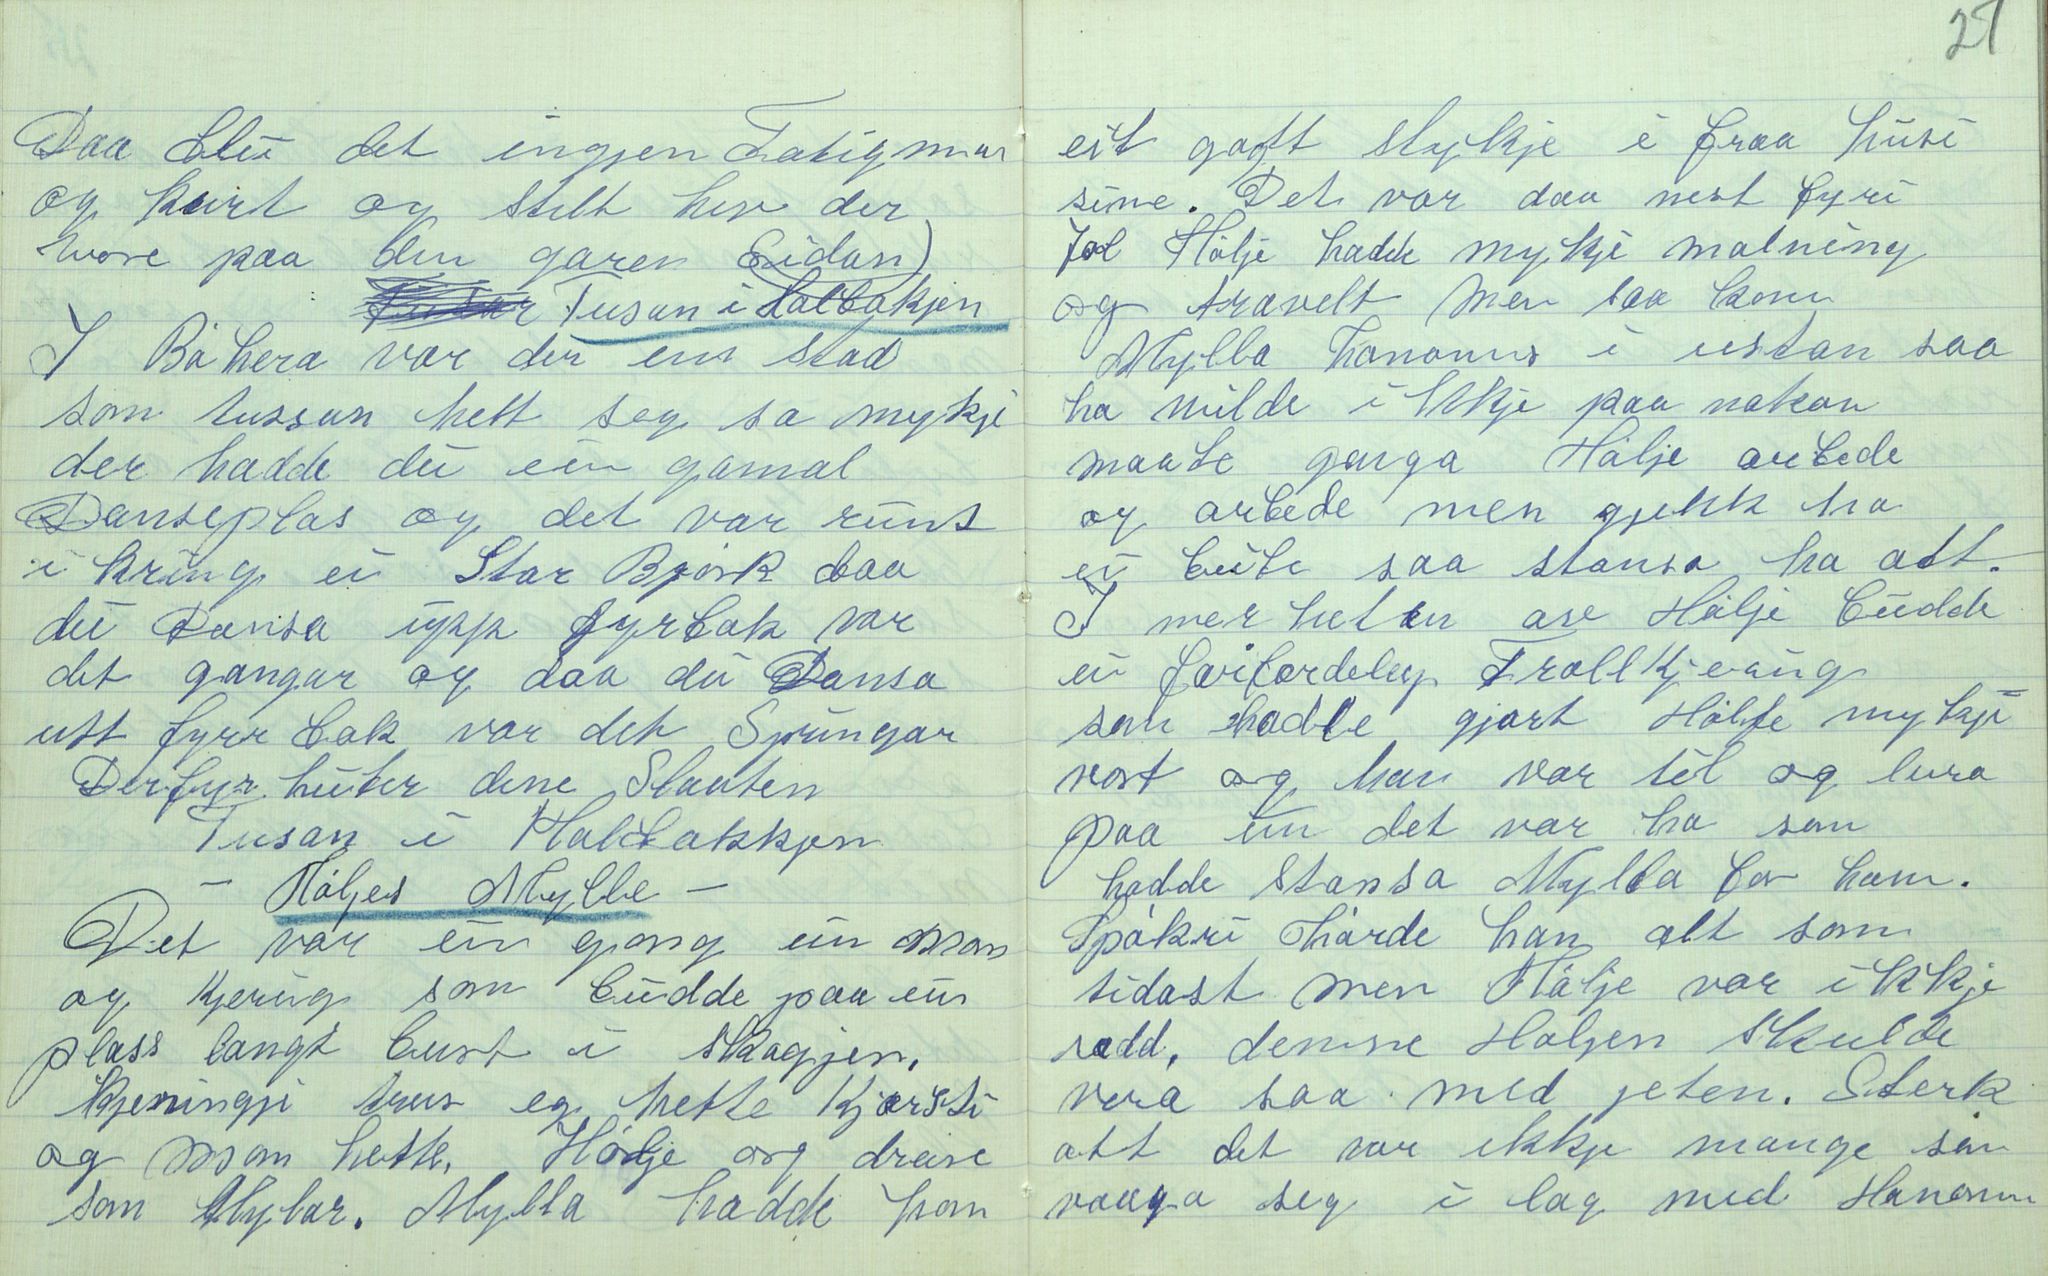 Daa blii det ingjen Fatigman
og keirt og stelt hev der
vore paa den garen Eidan)
Tusan i Halbakjen
I Båhera var der ein stad
som tussan helt seg sa mykje
der hadde dei ein gamal
Danseplas og det var runt
i kring ei Stor Bjørk daa
dei Dansa upp fyrbak var
det gangar og daa dei Dansa
utt fyrr bak var det Springar
Derfyr heiter dene Slaatten
Tusan i Halbakkjen
- Håljes Mylle -
Det var ein gong ein Man
og Kjering som budde paa ein
plass langt burt i skogjen.
Kjeringji trur eg hette Kjærsti
og Man hette. Hölje og dreiv
som Mylar. Mylla hadde han
27
eit gott stykje i fraa husi
sine. Det var daa nest fyri
Jol Hölje hadde mykji malning
og travelt men saa kom
Mylla hanoms i ustan saa
ha vilde ikkje paa nokon
maate ganga Hålje arbede
og arbede men gjekk ha
ei bite saa stansa ha att.
I nerheten av Hölje budde
ei forfordeleg Trollkjering
som hadde gjort Hölje mykji
vost og han var til og lura
paa um det var ha som
hadde stansa Mylla for ham.
Spökri hörde han alt som
tidast men Hålje var ikkje
redd, denne Holjen Skulde
vera saa med jeten. Sterk
att det var ikkje mange som
vaaga seg i lag med Hanom